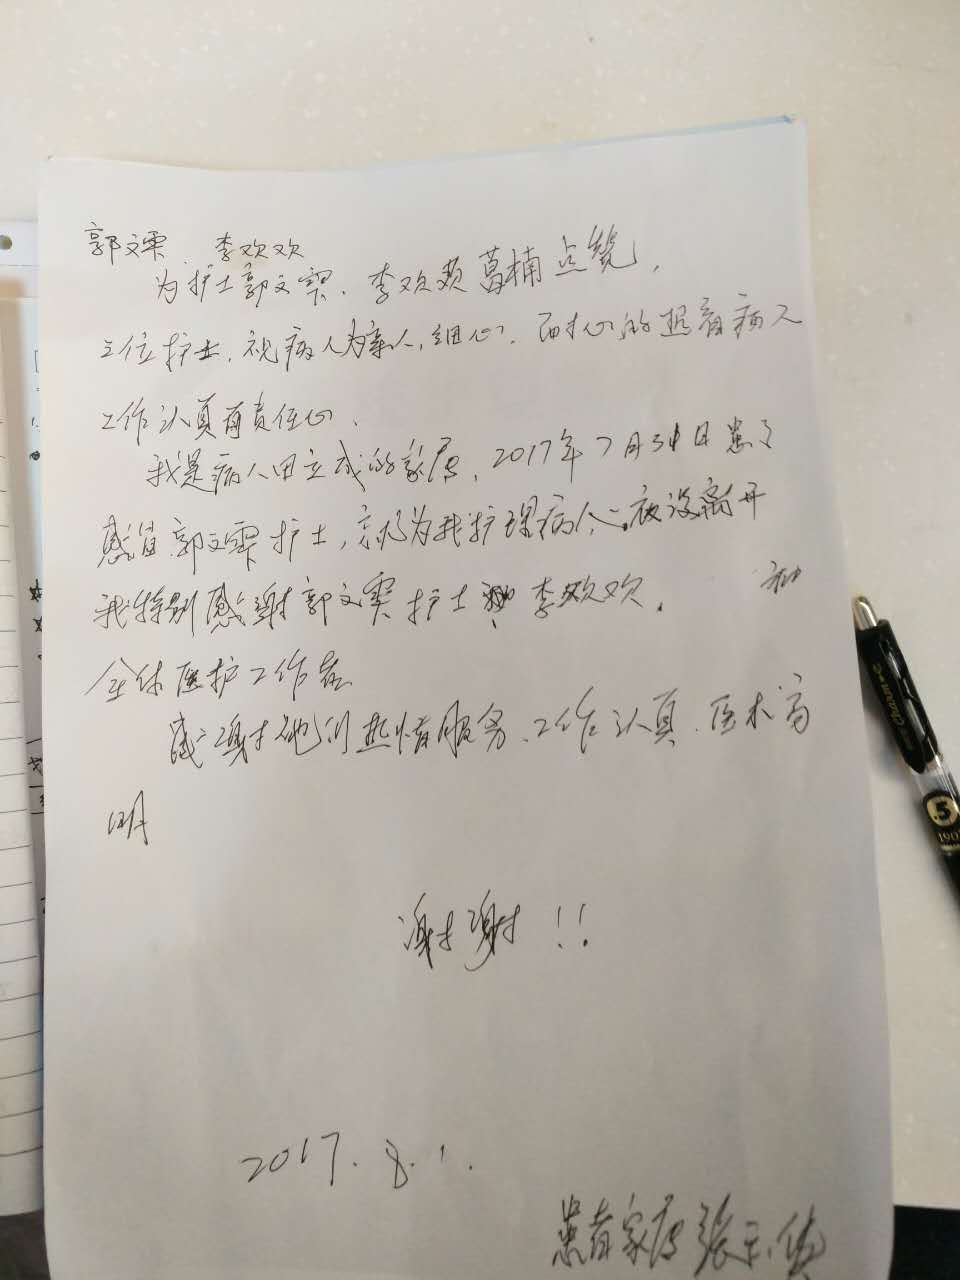 郭文雯、李欢欢
为护士郭文雯、李欢欢葛楠点赞,
三位护士,视病人为亲人,细心、耐心的照看病人
工作认真有责任心、
我是病人田立成的家属,2017年7月31日患了
感冒、郭文雯护士,就为我护理病人一夜没离开
我特别感谢郭文雯护士和李欢欢、 和
全体医护工作者
感谢她们热情服务、工作认真、医术高
明
谢谢!!
2017.8.1.
患者家属 张
.5